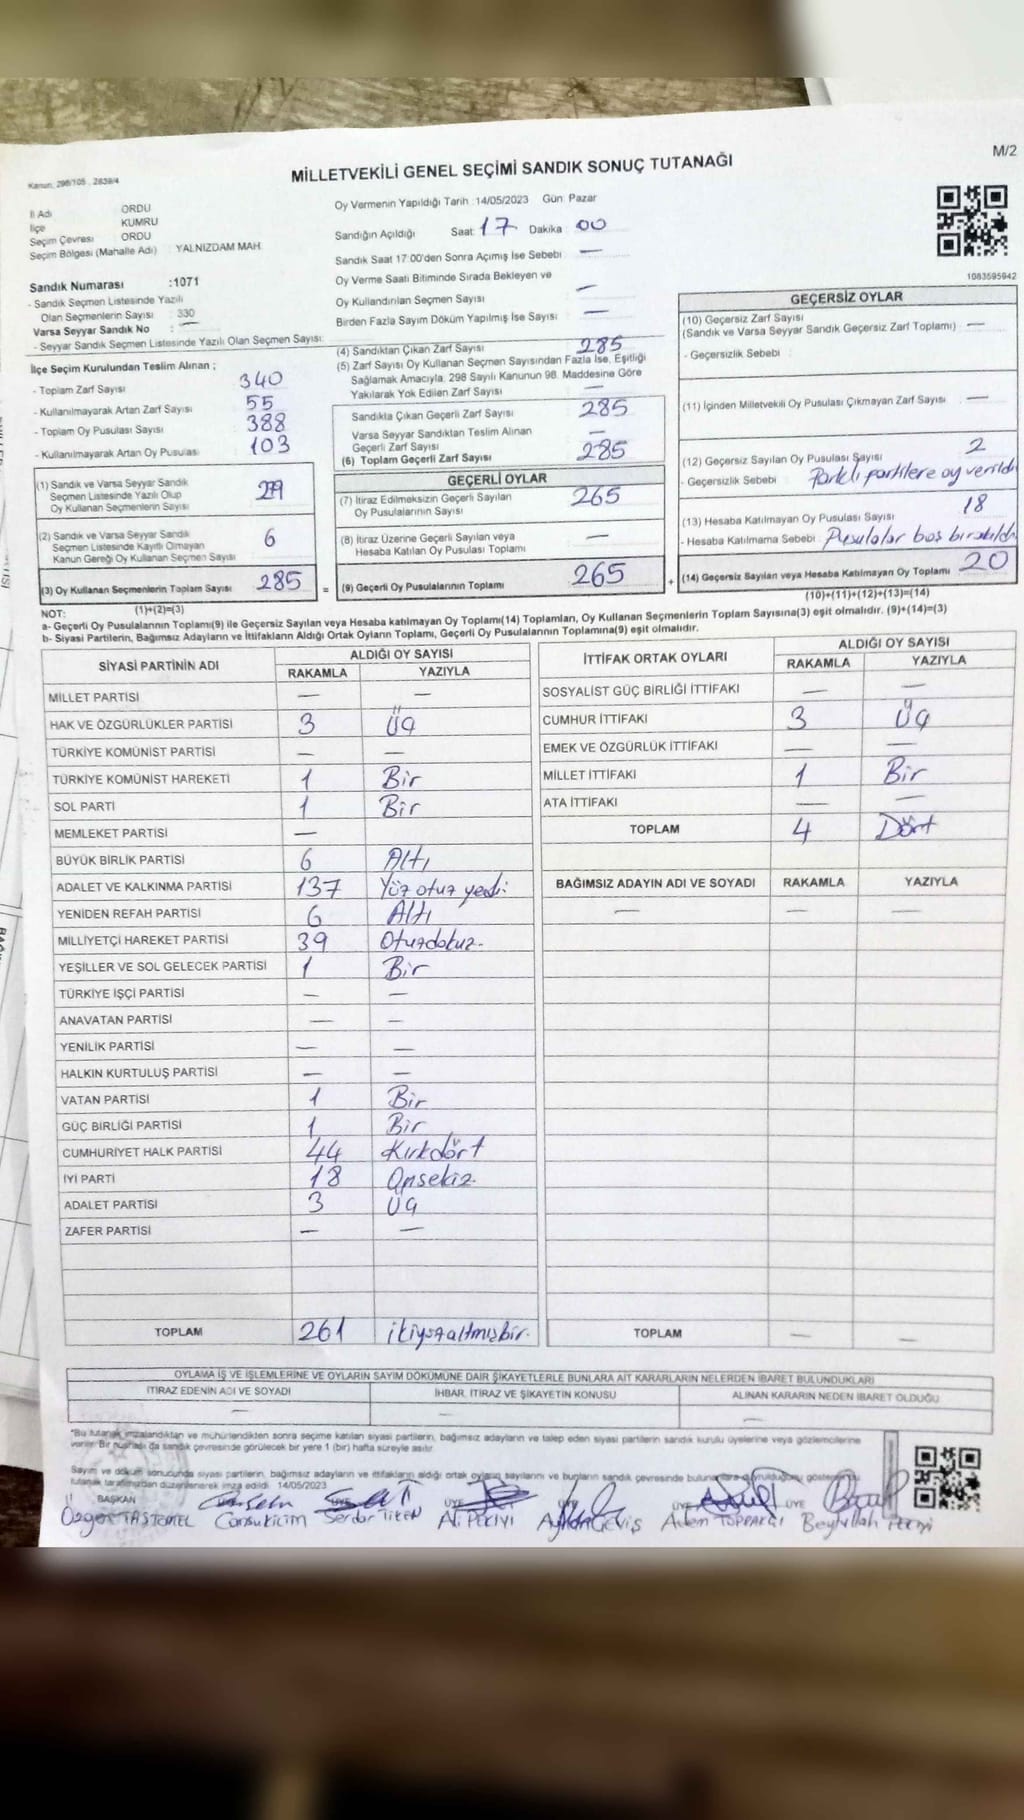 M/2
MİLLETVEKİLİ GENEL SEÇİMİ SANDIK SONUÇ TUTANAĞI
Kanun, 298/105 , 2839/4
İl Adı ORDU
İlçe KUMRU
Seçim Çevresi ORDU
Seçim Bölgesi (Mahalle Adı) : YALNIZDAM MAH.
Oy Vermenin Yapıldığı Tarih :14/05/2023 Gün: Pazar
Sandığın Açıldığı Saat: 17 Dakika 00
Sandık Saat 17:00'den Sonra Açımış İse Sebebi —
Oy Verme Saati Bitiminde Sırada Bekleyen ve
Oy Kullandırılan Seçmen Sayısı —
Birden Fazla Sayım Döküm Yapılmış İse Sayısı : —
Sandık Numarası :1071
- Sandık Seçmen Listesinde Yazılı
Olan Seçmenlerin Sayısı : 330
Varsa Seyyar Sandık No : —
- Seyyar Sandık Seçmen Listesinde Yazılı Olan Seçmen Sayısı:
İlçe Seçim Kurulundan Teslim Alınan ;
- Toplam Zarf Sayısı 340
- Kullanılmayarak Artan Zarf Sayısı 55
- Toplam Oy Pusulası Sayısı 388
- Kullanılmayarak Artan Oy Pusulası 103
(1) Sandık ve Varsa Seyyar Sandık
Seçmen Listesinde Yazılı Olup
Oy Kullanan Seçmenlerin Sayısı
(2) Sandık ve Varsa Seyyar Sandık
Seçmen Listesinde Kayıtlı Olmayan
Kanun Gereği Oy Kullanan Seçmen Sayısı 6
(3) Oy Kullanan Seçmenlerin Toplam Sayısı 285 =
(1)+(2)=(3)
(4) Sandıktan Çıkan Zarf Sayısı 285
(5) Zarf Sayısı Oy Kullanan Seçmen Sayısından Fazla İse, Eşitliği
Sağlamak Amacıyla; 298 Sayılı Kanunun 98. Maddesine Göre
Yakılarak Yok Edilen Zarf Sayısı —
Sandıkta Çıkan Geçerli Zarf Sayısı 285
Varsa Seyyar Sandıktan Teslim Alınan
Geçerli Zarf Sayısı —
(6) Toplam Geçerli Zarf Sayısı 285
GEÇERLİ OYLAR
(7) İtiraz Edilmeksizin Geçerli Sayılan
Oy Pusulalarının Sayısı 265
(8) İtiraz Üzerine Geçerli Sayılan veya
Hesaba Katılan Oy Pusulası Toplamı —
(9) Geçerli Oy Pusulalarının Toplamı 265 +
1083595942
GEÇERSİZ OYLAR
(10) Geçersiz Zarf Sayısı
(Sandık ve Varsa Seyyar Sandık Geçersiz Zarf Toplamı) —
- Geçersizlik Sebebi :
(11) İçinden Milletvekili Oy Pusulası Çıkmayan Zarf Sayısı —
(12) Geçersiz Sayılan Oy Pusulası Sayısı 2
- Geçersizlik Sebebi : Farklı partilere oy verildi
(13) Hesaba Katılmayan Oy Pusulası Sayısı 18
- Hesaba Katılmama Sebebi : Pusulalar boş bırakıldı
(14) Geçersiz Sayılan veya Hesaba Katılmayan Oy Toplamı 20
(10)+(11)+(12)+(13)=(14)
NOT:
a- Geçerli Oy Pusulalarının Toplamı(9) ile Geçersiz Sayılan veya Hesaba katılmayan Oy Toplamı(14) Toplamları, Oy Kullanan Seçmenlerin Toplam Sayısına(3) eşit olmalıdır. (9)+(14)=(3)
b- Siyasi Partilerin, Bağımsız Adayların ve İttifakların Aldığı Ortak Oyların Toplamı, Geçerli Oy Pusulalarının Toplamına(9) eşit olmalıdır.
SİYASİ PARTİNİN ADI ALDIĞI OY SAYISI
RAKAMLA YAZIYLA
MİLLET PARTİSİ — —
HAK VE ÖZGÜRLÜKLER PARTİSİ 3 Üç
TÜRKİYE KOMÜNİST PARTİSİ — —
TÜRKİYE KOMÜNİST HAREKETİ 1 Bir
SOL PARTİ 1 Bir
MEMLEKET PARTİSİ —
BÜYÜK BİRLİK PARTİSİ 6 Altı
ADALET VE KALKINMA PARTİSİ 137 Yüz otuz yedi
YENİDEN REFAH PARTİSİ 6 Altı
MİLLİYETÇİ HAREKET PARTİSİ 39 Otuzdokuz.
YEŞİLLER VE SOL GELECEK PARTİSİ 1 Bir
TÜRKİYE İŞÇİ PARTİSİ — —
ANAVATAN PARTİSİ — —
YENİLİK PARTİSİ — —
HALKIN KURTULUŞ PARTİSİ — —
VATAN PARTİSİ 1 Bir
GÜÇ BİRLİĞİ PARTİSİ 1 Bir
CUMHURİYET HALK PARTİSİ 44 Kırkdört
İYİ PARTİ 18 Onsekiz.
ADALET PARTİSİ 3 Üç
ZAFER PARTİSİ — —
TOPLAM 261 ikiyüzaltmışbir.
İTTİFAK ORTAK OYLARI ALDIĞI OY SAYISI
RAKAMLA YAZIYLA
SOSYALİST GÜÇ BİRLİĞİ İTTİFAKI — —
CUMHUR İTTİFAKI 3 Üç
EMEK VE ÖZGÜRLÜK İTTİFAKI — —
MİLLET İTTİFAKI 1 Bir
ATA İTTİFAKI — —
TOPLAM 4 Dört
BAĞIMSIZ ADAYIN ADI VE SOYADI RAKAMLA YAZIYLA
— — —
TOPLAM — —
OYLAMA İŞ VE İŞLEMLERİNE VE OYLARIN SAYIM DÖKÜMÜNE DAİR ŞİKAYETLERLE BUNLARA AİT KARARLARIN NELERDEN İBARET BULUNDUKLARI
İTİRAZ EDENİN ADI VE SOYADI İHBAR, İTİRAZ VE ŞİKAYETİN KONUSU ALINAN KARARIN NEDEN İBARET OLDUĞU
— — —
*Bu tutanak imzalandıktan ve mühürlendikten sonra seçime katılan siyasi partilerin, bağımsız adayların ve talep eden siyasi partilerin sandık kurulu üyelerine veya gözlemcilerine
verilir. Bir nüshası da sandık çevresinde görülecek bir yere 1 (bir) hafta süreyle asılır.
Sayım ve döküm sonucunda siyasi partilerin, bağımsız adayların ve ittifakların aldığı ortak oyların sayılarını ve bunların sandık çevresinde
tutanak tarafımızdan düzenlenerek imza edildi. 14/05/2023
BAŞKAN ÜYE ÜYE ÜYE ÜYE ÜYE
Özgür TAŞTEMEL Cansu Serdar Ali PEKİYİ Ayhan GEVİŞ Adem TOPRAKÇI Beytullah